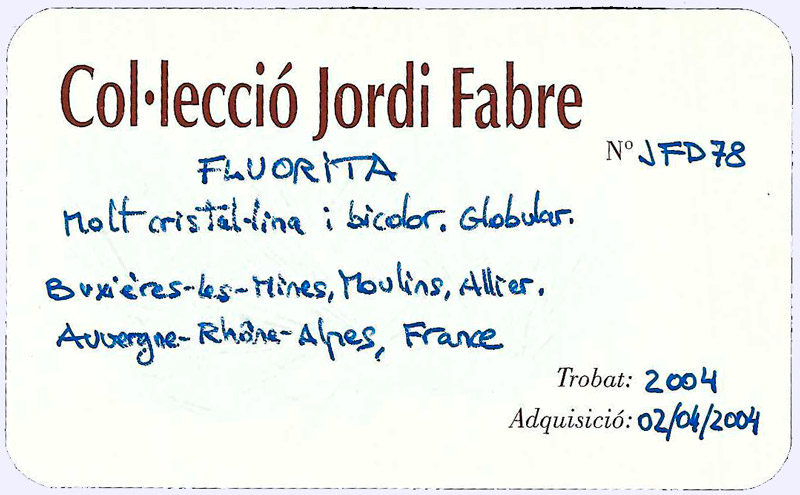 Col·lecció Jordi Fabre
Nº JFD78
FLUORITA
Molt cristal·lina i bicolor. Globular.
Buxières-les-Mines, Moulins, Allier.
Auvergne-Rhône-Alpes, France
Trobat: 2004
Adquisició: 02/04/2004